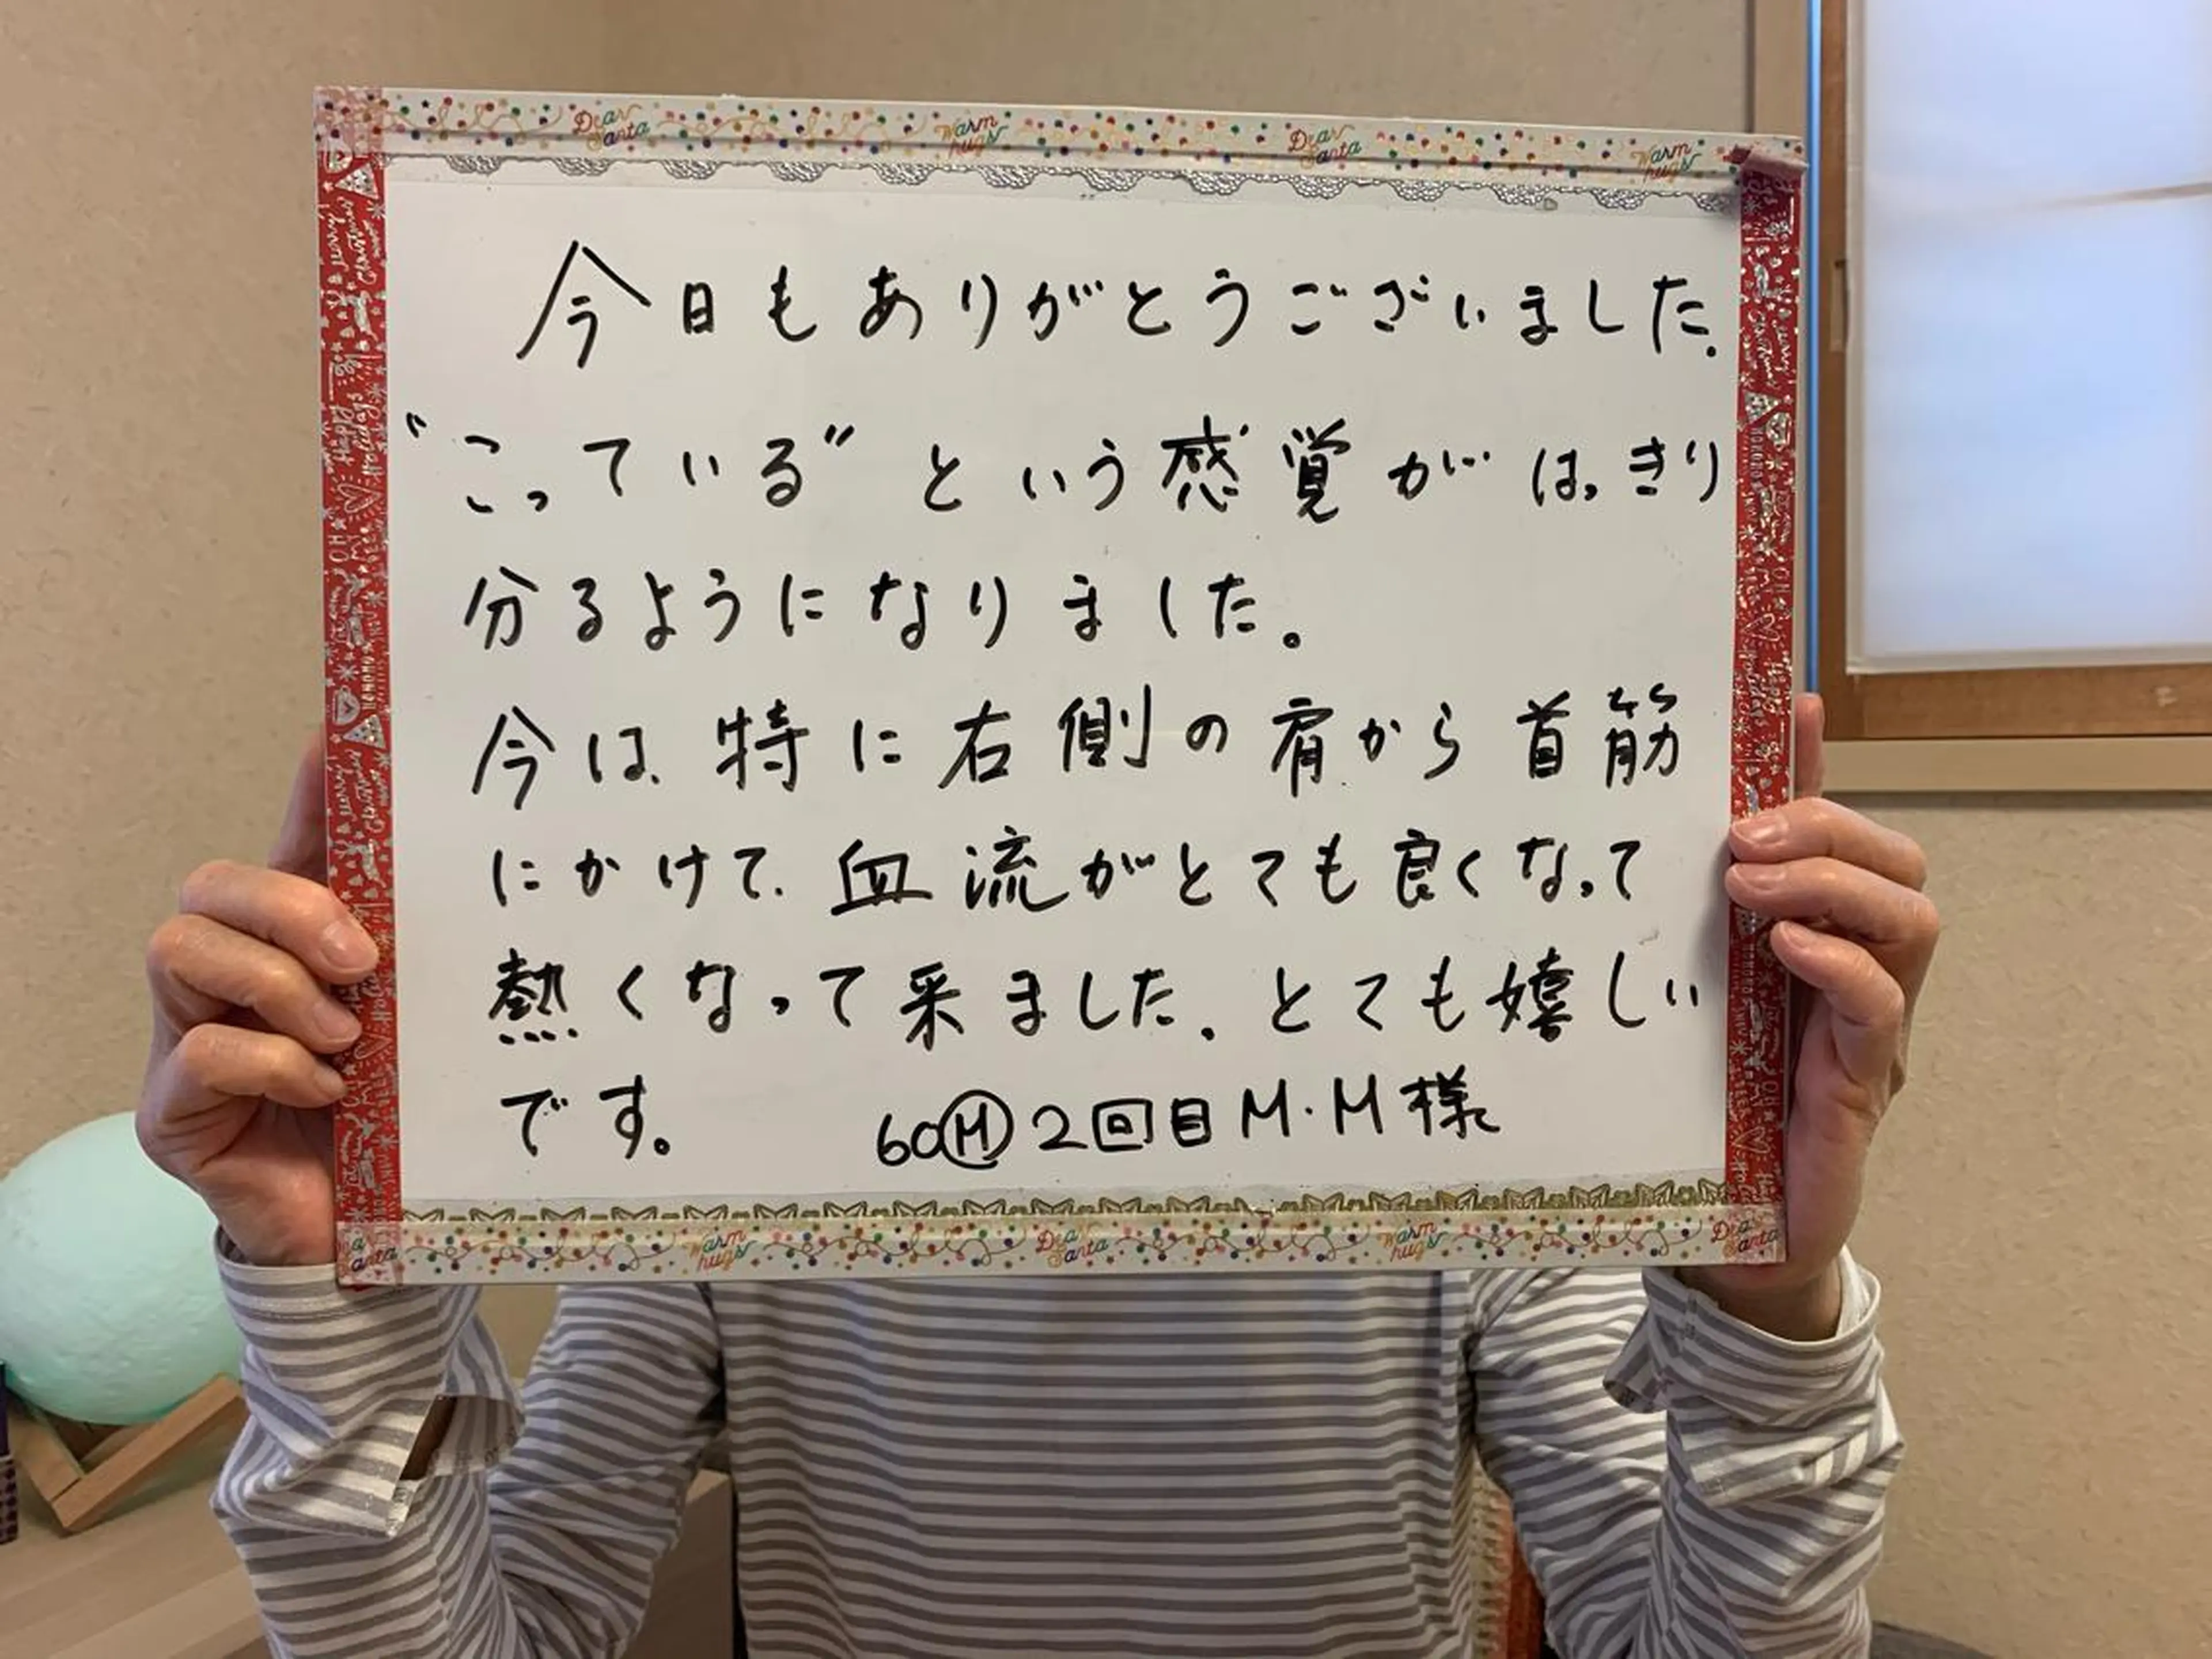 今日もありがとうございました.
“こっている” という感覚が はっきり
分るようになりました。
今は、特に右側の肩から首筋
にかけて、血流がとても良くなって
熱くなって来ました。とても嬉しい
です。 60Ⓜ2回目 M・M様
Dear Santa Warm hugs Dear Santa Warm hugs
Warm hugs Dear Santa Warm hugs Dear Santa
Happy Holidays
Merry Christmas